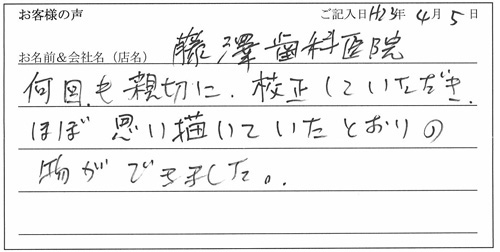 お客様の声 ご記入日H23年4月5日
お名前&会社名(店名) 藤澤歯科医院
何回も親切に、校正していただき、
ほぼ思い描いていたとおりの
物ができました。